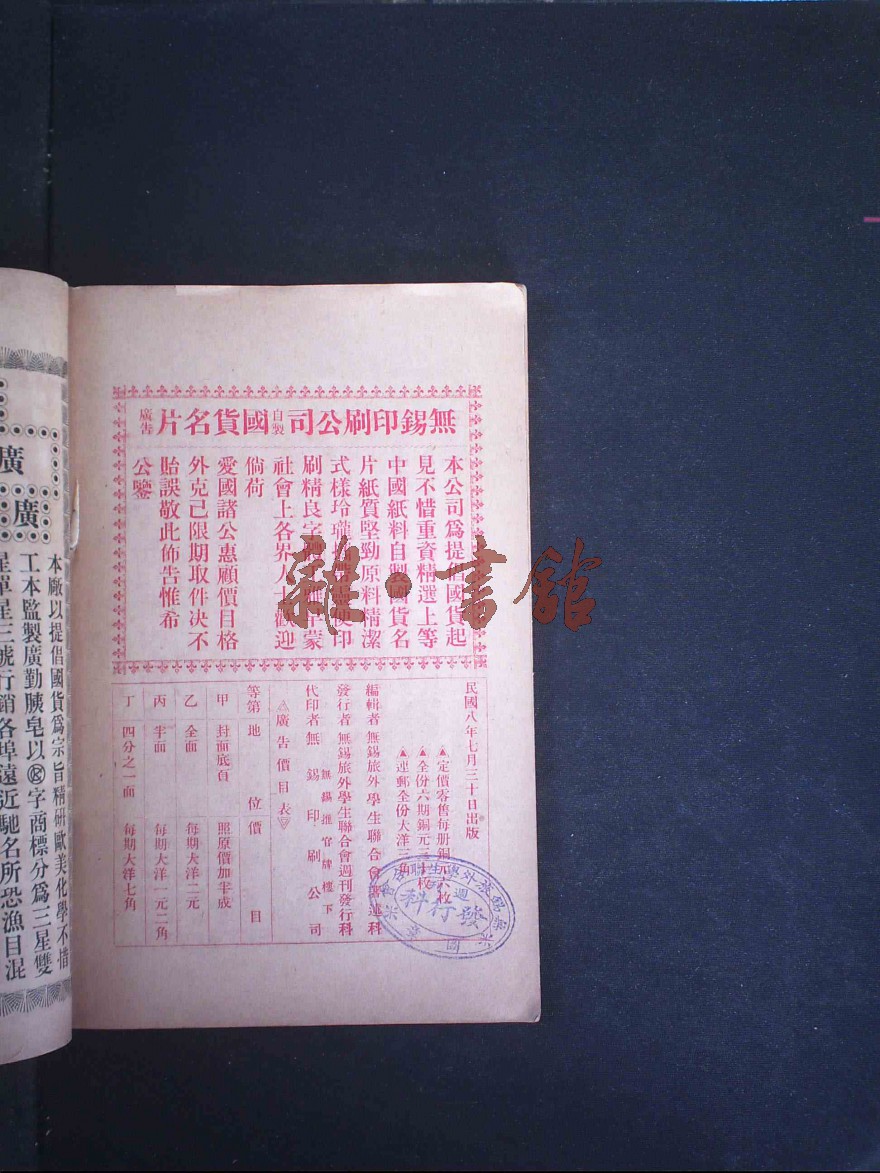 無錫印刷公司自製國貨名片廣告
本公司爲提倡國貨起
見不惜重資精選上等
中國紙料自製國貨名
片紙質堅勁原料精潔
式樣玲瓏 便印
刷精良字 蒙
社會上各界人士歡迎
倘荷
愛國諸公惠顧價目格
外克己限期取件决不
貽誤敬此佈告惟希
公鑒
民國八年七月三十日出版
▲定價零售每册銅元六枚
▲全份六期銅元三十枚
▲連郵全份大洋三角
編輯者 無錫旅外學生聯合會 述科
發行者 無錫旅外學生聯合會週刊發行科
無錫推官牌樓下
代印者 無錫印刷公司
廣告價目表
等第 地位 價目
甲 封面底頁 照原價加半成
乙 全面 每期大洋二元
丙 半面 每期大洋一元二角
丁 四分之一面 每期大洋七角
發行科
雜·書館
廣
廣
本廠以提倡國貨爲宗旨精硏歐美化學不惜
工本監製廣勤胰皂以 字商標分爲三星雙
星單星三號行銷各埠遠近馳名所恐漁目混